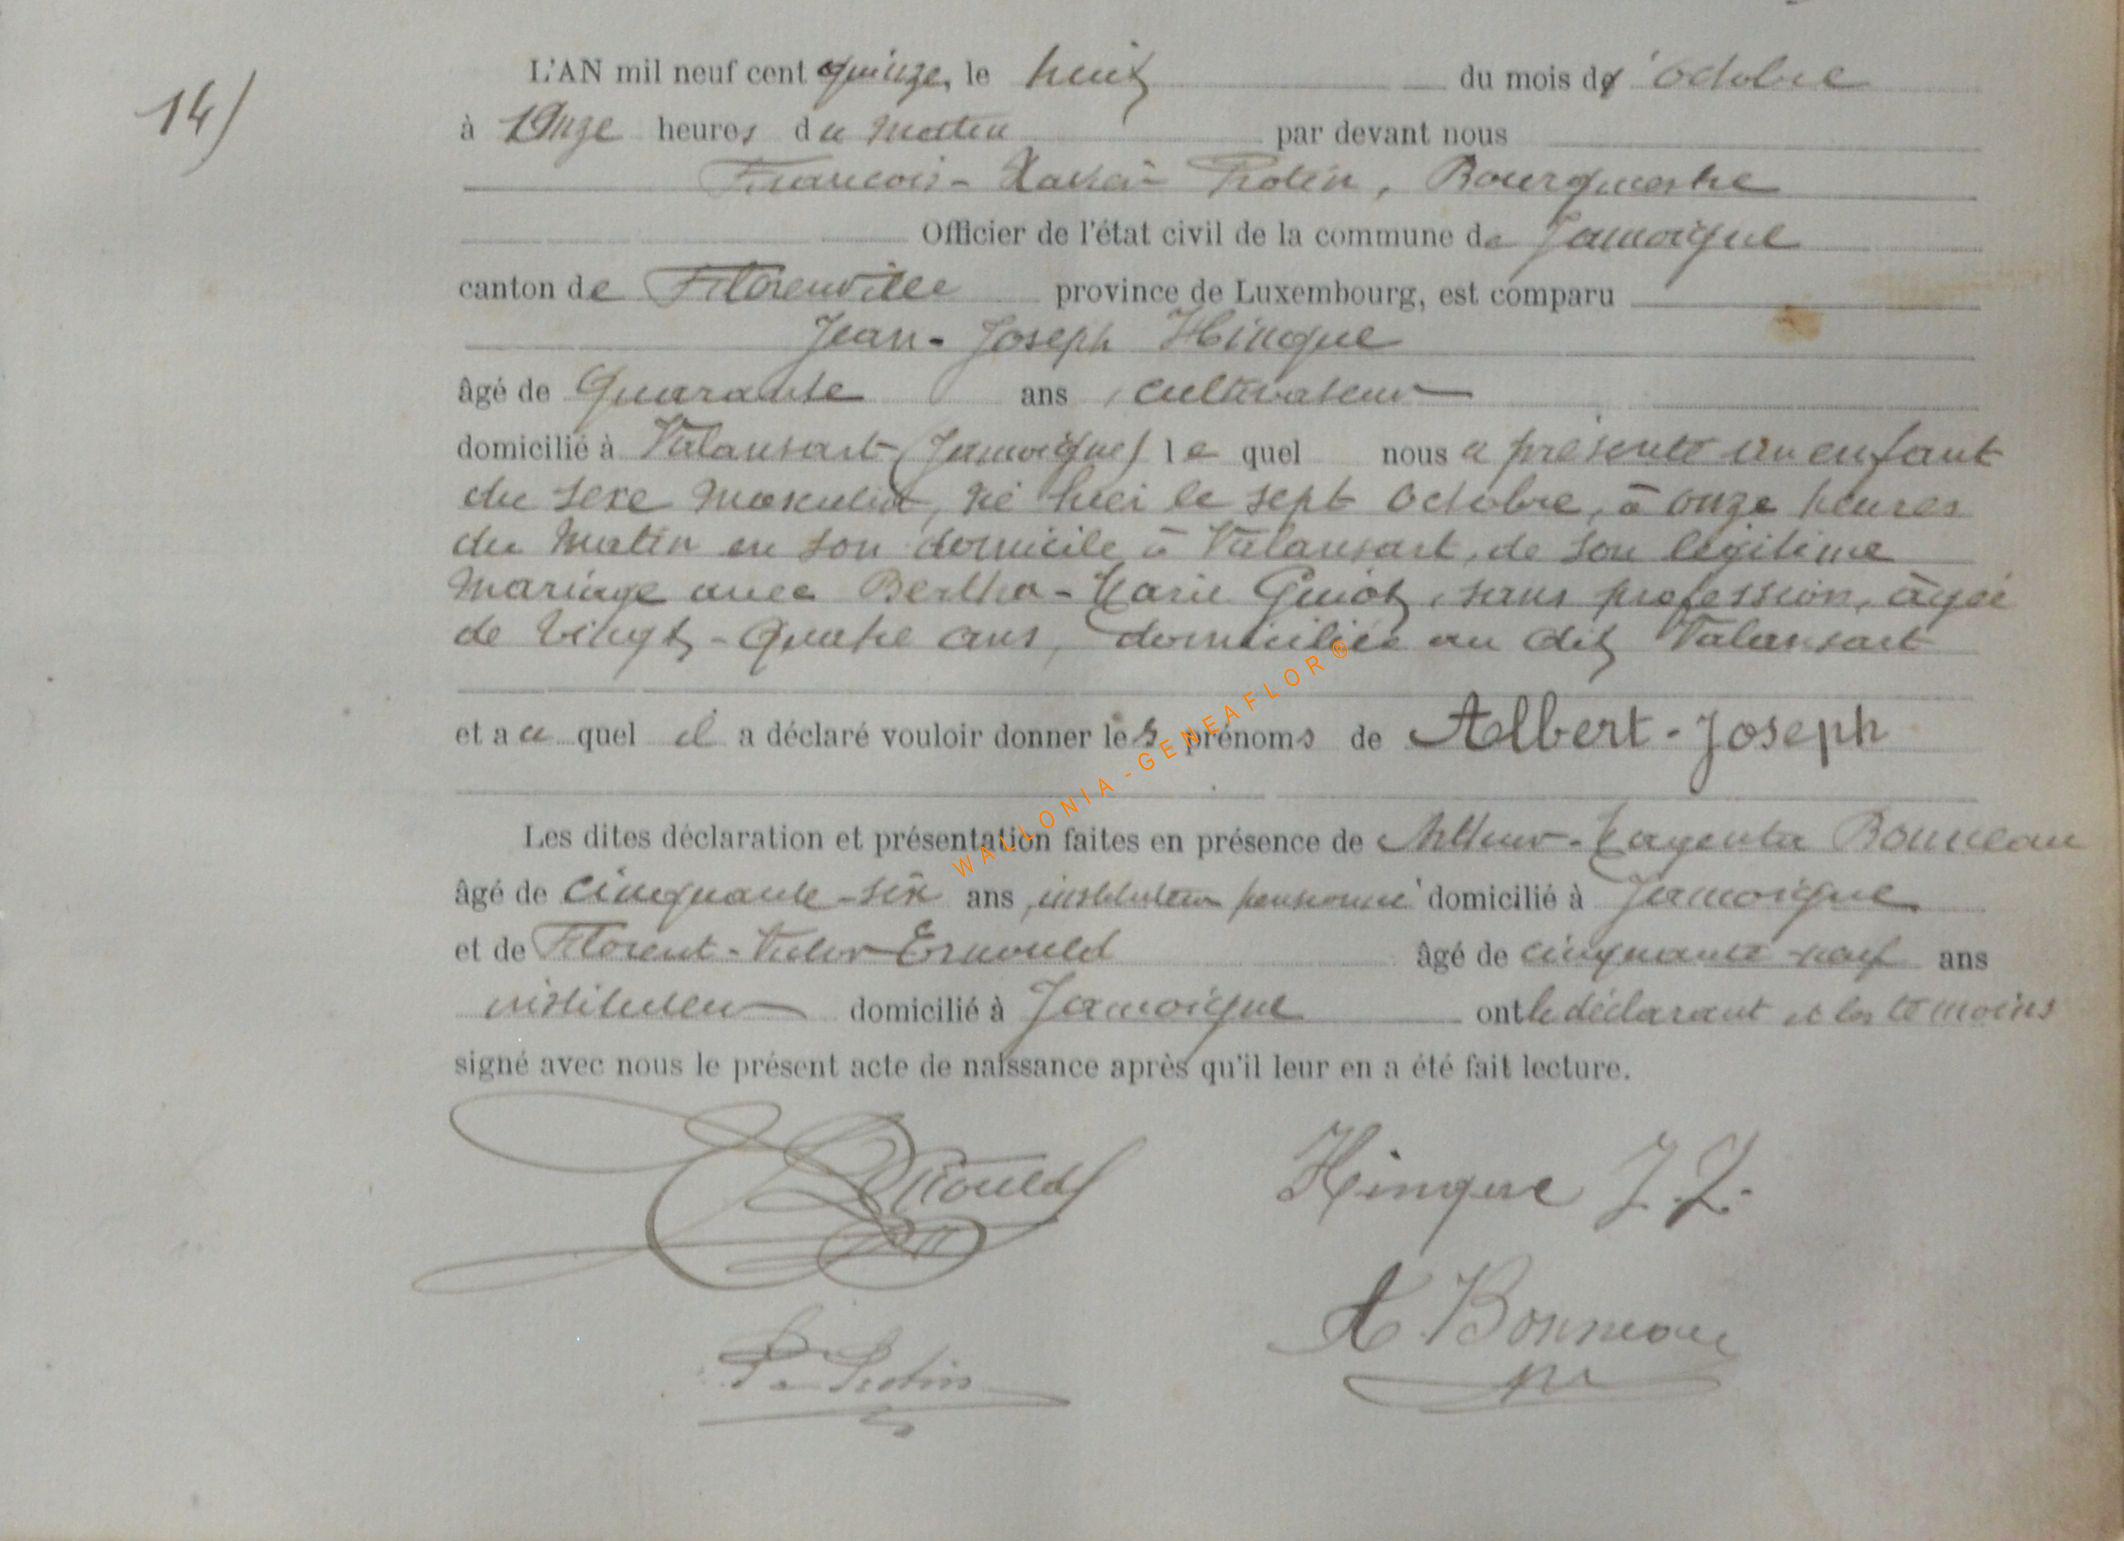 14)
L'AN mil neuf cent quinze, le huit du mois d'octobre
à onze heures du matin par devant nous
François-Xavier Protin, Bourgmestre
Officier de l'état civil de la commune de Jamoigne
canton de Florenville province de Luxembourg, est comparu
Jean-Joseph Hingue
âgé de Quarante ans, cultivateur
domicilié à Valansart (Jamoigne) lequel nous a présenté un enfant
du sexe masculin, né hier le sept octobre, à onze heures
du matin en son domicile à Valansart, de son légitime
mariage avec Bertha-Marie Guiot, sans profession, âgée
de vingt-quatre ans, domiciliée au dit Valansart
et auquel il a déclaré vouloir donner les prénoms de Albert-Joseph
Les dites déclaration et présentation faites en présence de Arthur-Magenta Bonneau
âgé de cinquante-six ans, instituteur pensionné domicilié à Jamoigne
et de Florent-Victor Ernould âgé de cinquante-neuf ans
instituteur domicilié à Jamoigne ont le déclarant et les témoins
signé avec nous le présent acte de naissance après qu'il leur en a été fait lecture.
Ernould Hingue J.J.
A. Bonneau
Protin
WALLONIA-GENEAFLOR®